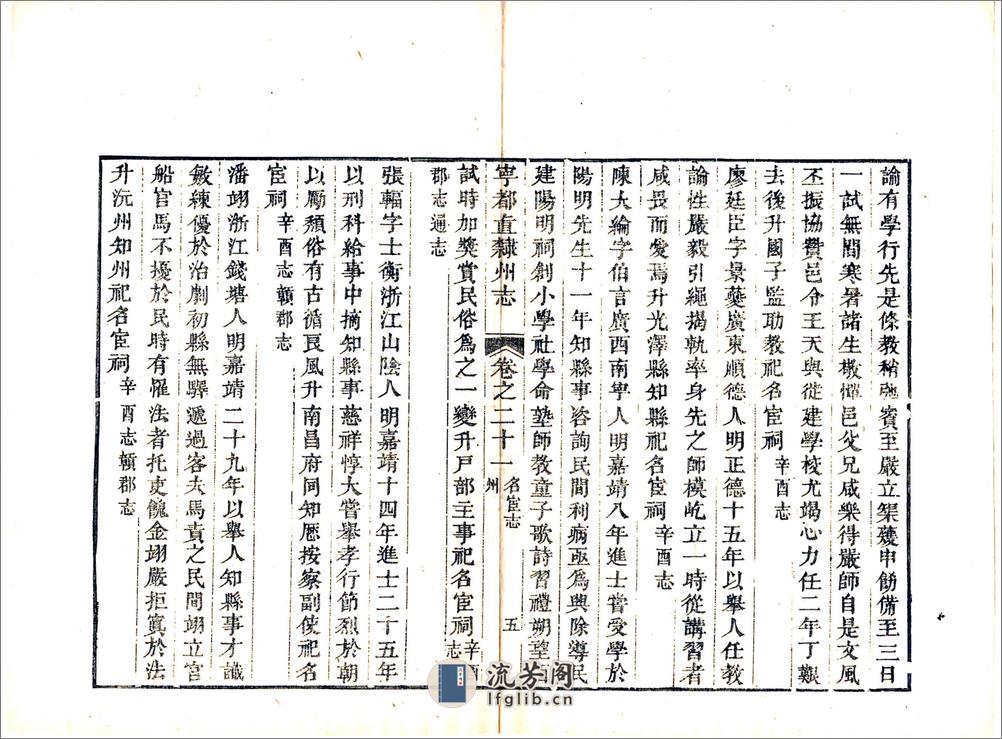 諭有學行先是條教稍弛賓至嚴立榘蠖申飭備至三日
一試無間寒暑諸生敬憚邑父兄咸樂得嚴師自是文風
丕振協贊邑令王天與徙建學校尤竭心力任二年丁艱
去後升國子監助教祀名宦祠辛酉志
廖廷臣字景夔廣東順德人明正德十五年以舉人任教
諭性嚴毅引繩揭執率身先之師模屹立一時從講習者
咸畏而愛焉升光澤縣知縣祀名宦祠辛酉志
陳大綸字伯言廣西南寧人明嘉靖八年進士嘗受學於
陽明先生十一年知縣事咨詢民間利病亟為興除導民
建陽明祠創小學社學命塾師教童子歌詩習禮朔望
寧都直隸州志 卷之二十一 名宦志 州 五
試時加獎賞民俗為之一變升戶部主事祀名宦祠辛酉志
郡志通志
張輻字士衡浙江山陰人明嘉靖十四年進士二十五年
以刑科給事中摘知縣事慈祥惇大嘗舉孝行節烈於朝
以勵頹俗有古循良風升南昌府同知歷按察副使祀名
宦祠辛酉志贛郡志
潘翊浙江錢塘人明嘉靖二十九年以舉人知縣事才識
敏練優於治劇初縣無驛遞過客夫馬責之民間翊立官
船官馬不擾於民時有罹法者托吏餽金翊嚴拒寘於法
升沅州知州祀名宦祠辛酉志贛郡志
流芳阁
lfglib.cn